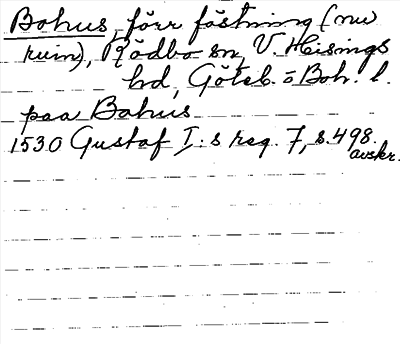 Bohus, förr fästning (nu
ruin), Rödbo sn, V. Hisings
hd, Göteb. o Boh. l.
paa Bahus
1530 Gustaf I:s reg. 7, s. 498.
avskr.